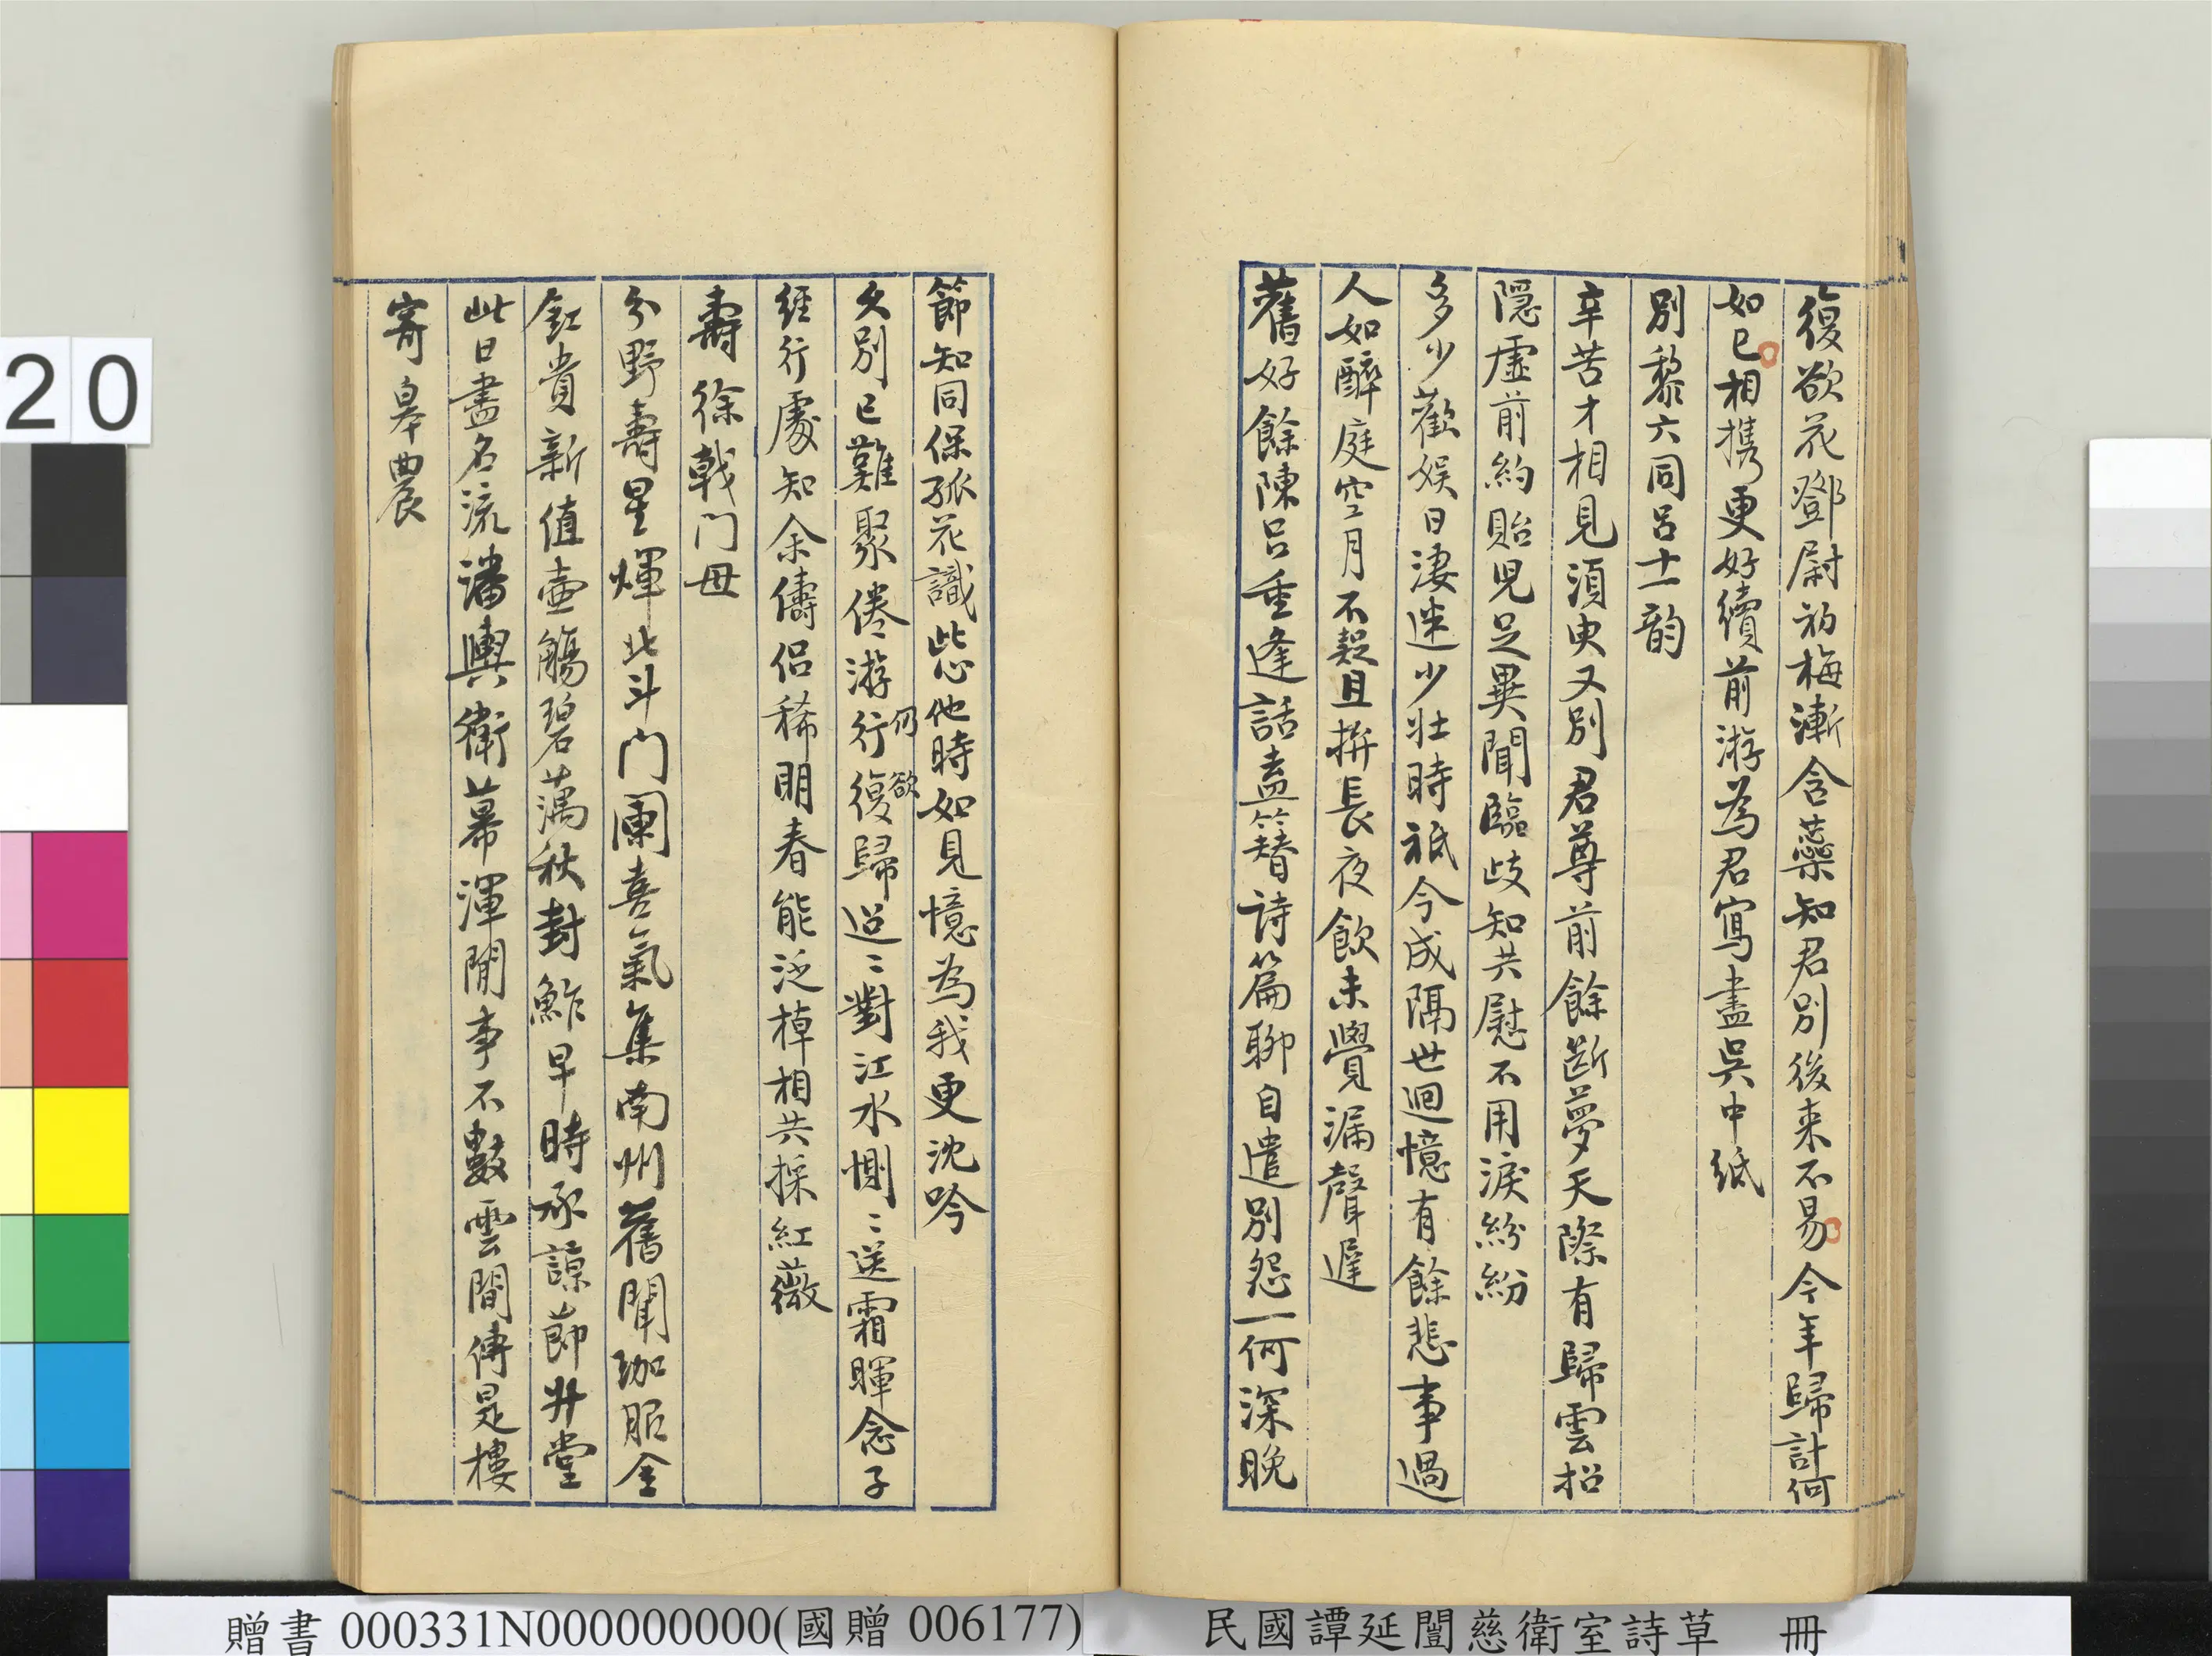 復欲花鄧尉初梅漸含蘂知君別後来不易今年歸計何
如已相携更好續前游為君寫盡吳中紙
別黎六同呂十一韵
辛苦才相見須臾又別君尊前餘斷夢天際有歸雲招
隱虛前約貽児足異聞臨歧知共慰不用淚紛紛
多少歡娱日淒迷少壯時祇今成隔世迴憶有餘悲事過
人如醉庭空月不疑且拚長夜飲未覺漏聲遲
舊好餘陳呂重逢話盍簪詩篇聊自遣別怨一何深晚
節知同保孤花識此心他時如見憶為我更沈吟
久別已難聚倦游行復歸迢〻對江水惻〻送霜暉念子
仍欲
經行處知余儔侶稀明春能泛棹相共採紅薇
壽徐戟门母
分野壽星煇北斗门闌喜氣集南州舊聞珈服金
釭貴新值壷觴碧藕秋封鮓早時承諒節升堂
此日盡名流潘輿衛幕渾閒事不數雲間傳是樓
寄皋農
20
贈書 000331N000000000(國贈 006177)
民國譚延闓慈衛室詩草 冊